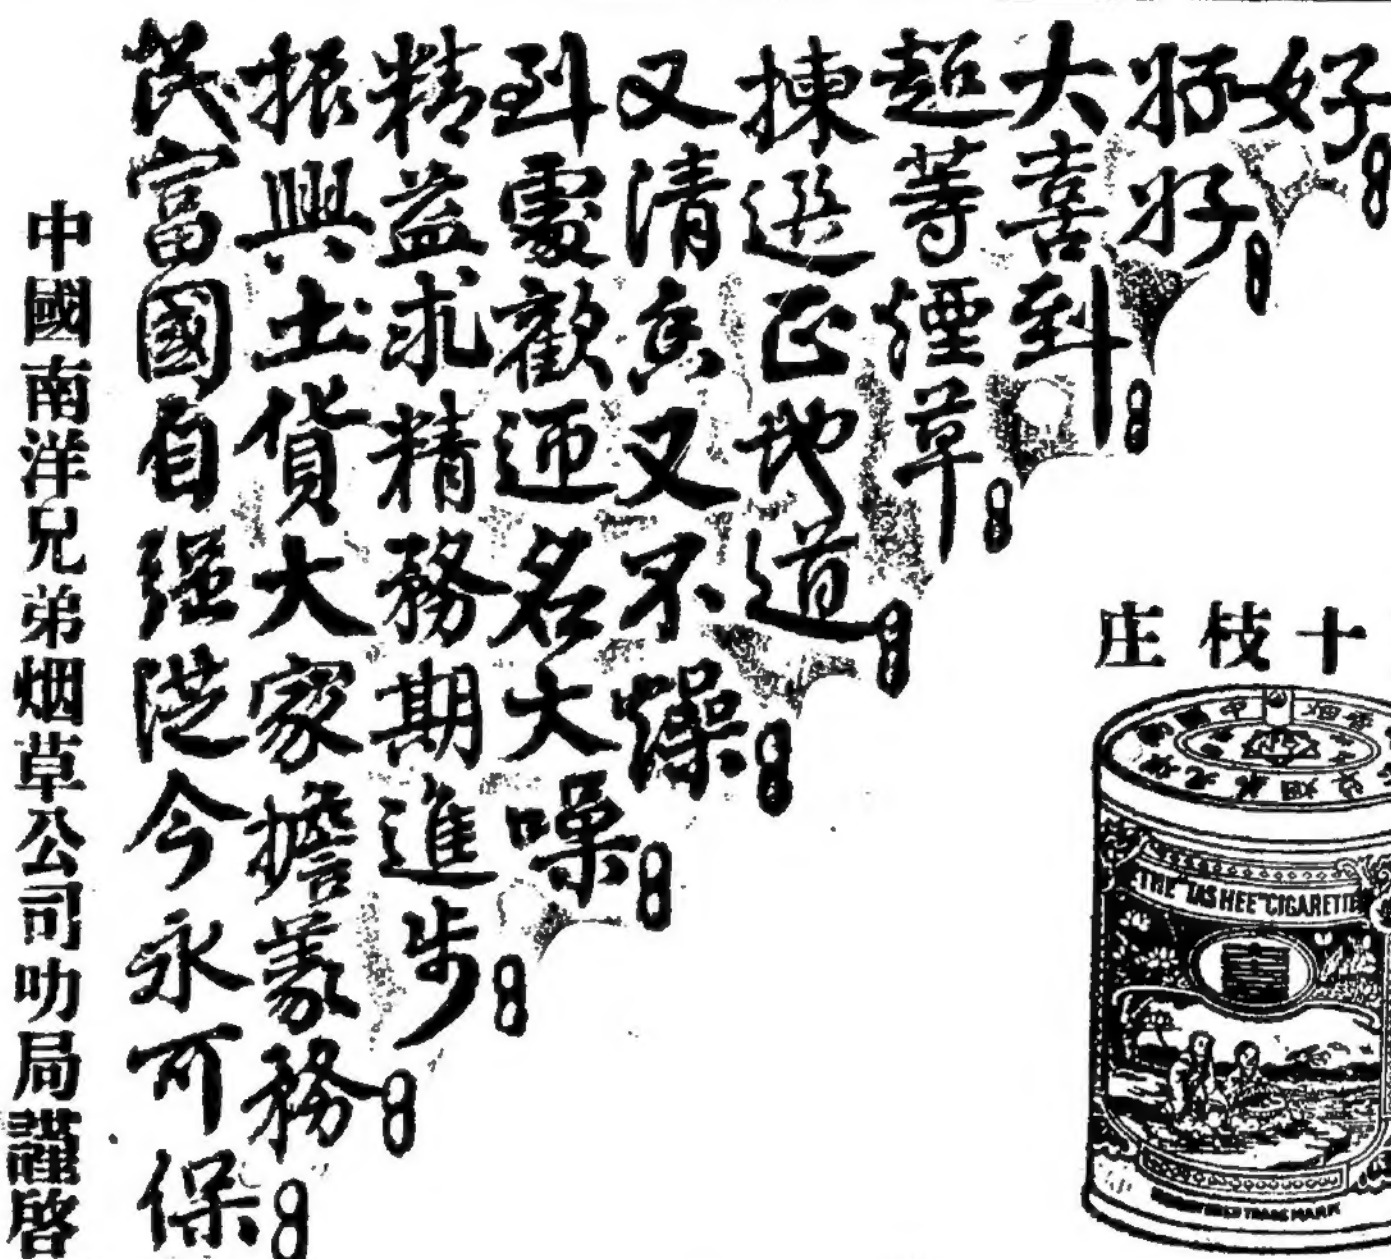 好
好好
大喜到
超等煙草
揀選正地道
又清香又不燥
到處歡迎名大噪
精益求精務期進步
振興土貨大家擔義務
民富國自強從今永可保
中國南洋兄弟烟草公司叻局謹啓
十枝庄
THE "TASHEE" CIGARETTE
喜
TRADE MARK